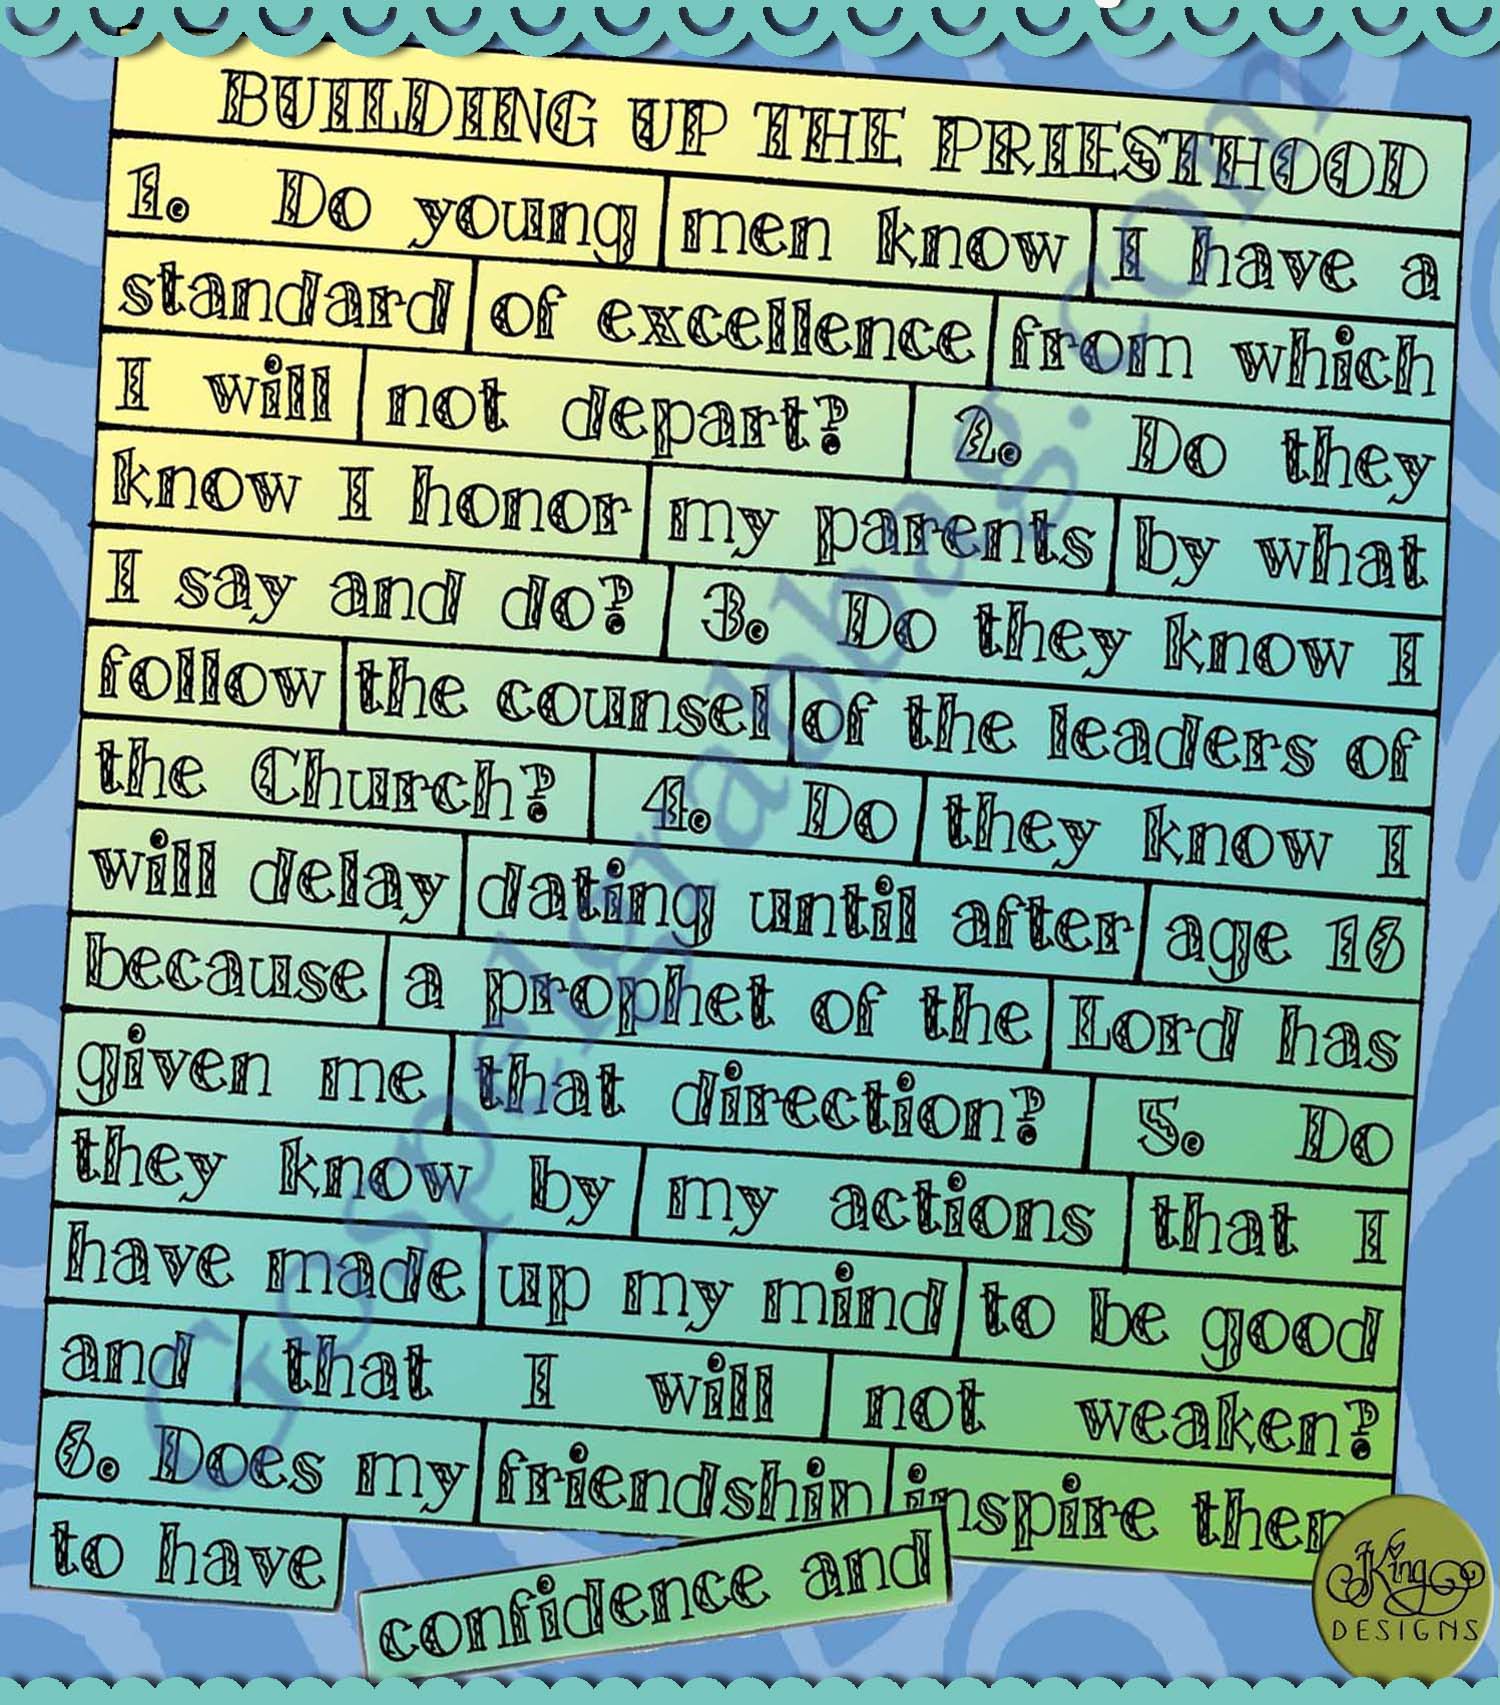 BUILDING UP THE PRIESTHOOD
1. Do young men know I have a
standard of excellence from which
I will not depart? 2. Do they
know I honor my parents by what
I say and do? 3. Do they know I
follow the counsel of the leaders of
the Church? 4. Do they know I
will delay dating until after age 16
because a prophet of the Lord has
given me that direction? 5. Do
they know by my actions that I
have made up my mind to be good
and that I will not weaken?
6. Does my friendship inspire them
to have
confidence and
Gospelgrabbag.com
JKing
DESIGNS